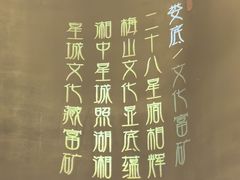 娄底/文化富矿
二十八星宿相辉
梅山文化显底蕴
湘中星城照湖湘
星城文化藏富矿